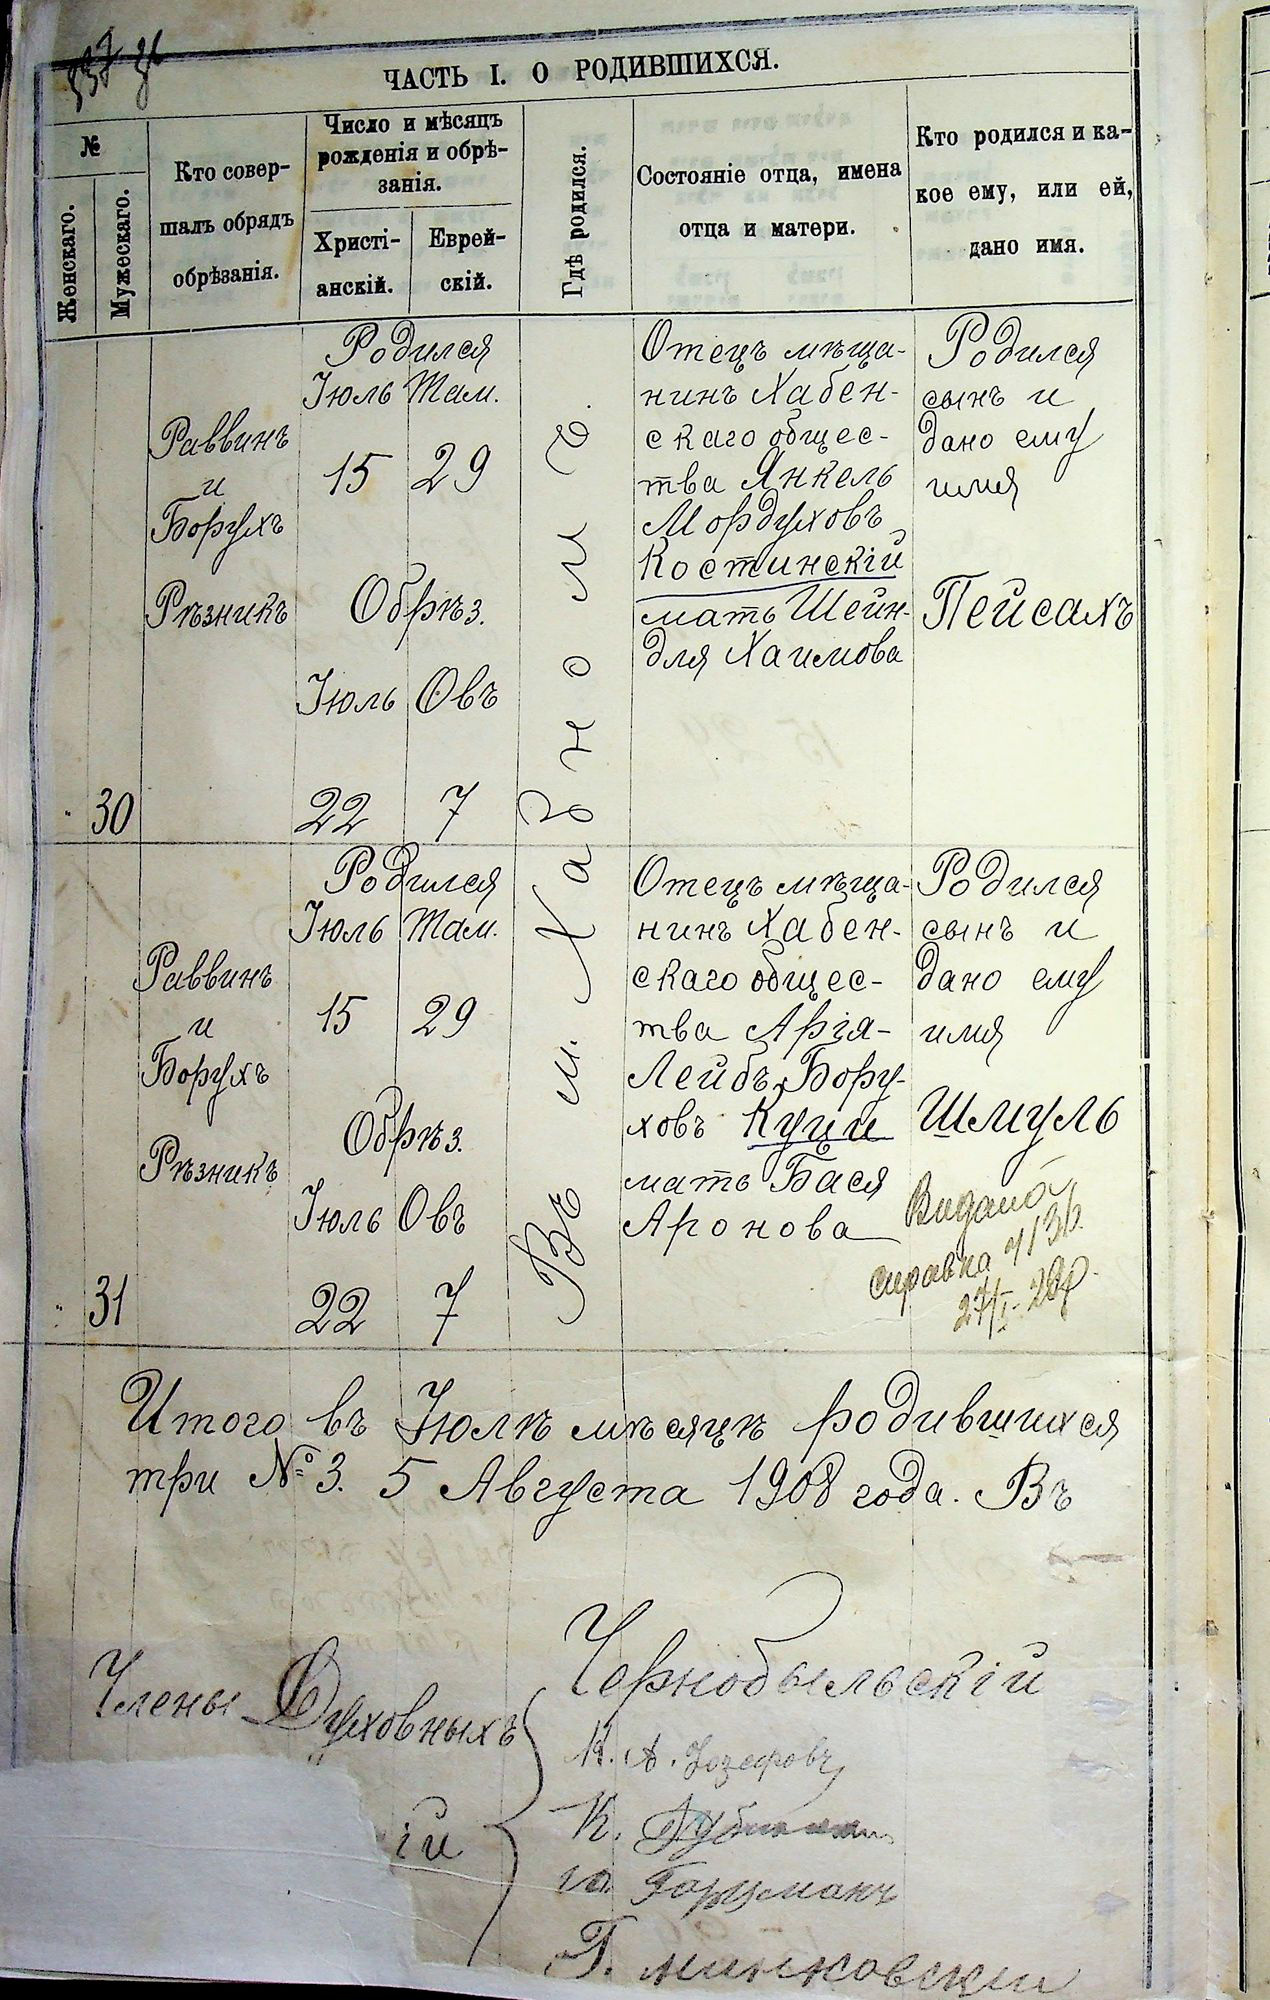 ЧАСТЬ I. О РОДИВШИХСЯ.
№
Женскаго.
Мужескаго.
Кто совер-
шалъ обрядъ
обрѣзанія.
Число и мѣсяцъ
рожденія и обрѣ-
занія.
Христі-
анскій.
Еврей-
скій.
Гдѣ родился.
Состояніе отца, имена
отца и матери.
Кто родился и ка-
кое ему, или ей,
дано имя.
30
Раввинъ
и
Борухъ
Рѣзникъ
Родился
Іюль Там.
15 29
Обрѣз.
Іюль Овъ
22 7
Въ м. Хабномъ.
Отецъ мѣща-
нинъ Хабен-
скаго общес-
тва Янкель
Мордуховъ
Костинскій
мать Шейн-
для Хаимова
Родился
сынъ и
дано ему
имя
Пейсахъ
31
Раввинъ
и
Борухъ
Рѣзникъ
Родился
Іюль Там.
15 29
Обрѣз.
Іюль Овъ
22 7
Отецъ мѣща-
нинъ Хабен-
скаго общес-
тва Арія-
Лейбъ Бору-
ховъ Куци
мать Бася
Аронова
Родился
сынъ и
дано ему
имя
Шмуль
справка
Итого въ Іюлѣ мѣсяцѣ родившихся
три № 3. 5 Августа 1908 года. Въ
Члены Духовныхъ
ій
Чернобыльскій
К.
Г. Минковскій